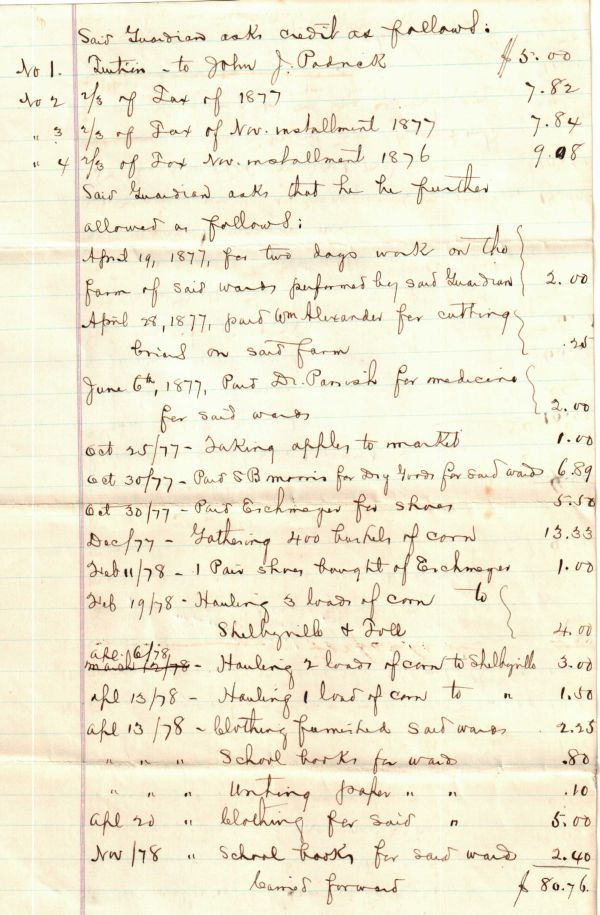 Said Guardian asks credit as follows:
No 1. Tuition - to John J. Padrick $5.00
No 2 2/3 of Tax of 1877 7.82
" 3 2/3 of Tax of Nov. installment 1877 7.84
" 4 2/3 of Tax Nov. installment 1876 9.08
Said Guardian asks that he be further
allowed as follows:
April 19, 1877, for two days work on the
farm of said wards performed by said Guardian 2.00
April 28, 1877, paid Wm Alexander for cutting
briars on said farm .25
June 6th, 1877, Paid Dr. Parrish for medicine
for said wards 2.00
Oct 25/77 - Taking apples to market 1.00
Oct 30/77 - Paid S B Morris for Dry Goods for said wards 6.89
Oct 30/77 - Paid Eschmeyer for shoes 5.50
Dec/77 - Gathering 400 bushels of corn 13.33
Feb 11/78 - 1 Pair shoes bought of Eschmeyer 1.00
Feb 19/78 - Hauling 3 loads of corn to
Shelbyville & Toll 4.00
apl. 6/78
march 12/78 - Hauling 2 loads of corn to Shelbyville 3.00
apl 13/78 - Hauling 1 load of corn to " 1.50
apl 13/78 - Clothing furnished said wards 2.25
" " " School books for wards .80
" " " Writing paper " " .10
apl 20 " Clothing for said " 5.00
Nov/78 " School books for said wards 2.40
Carried forward $80.76.